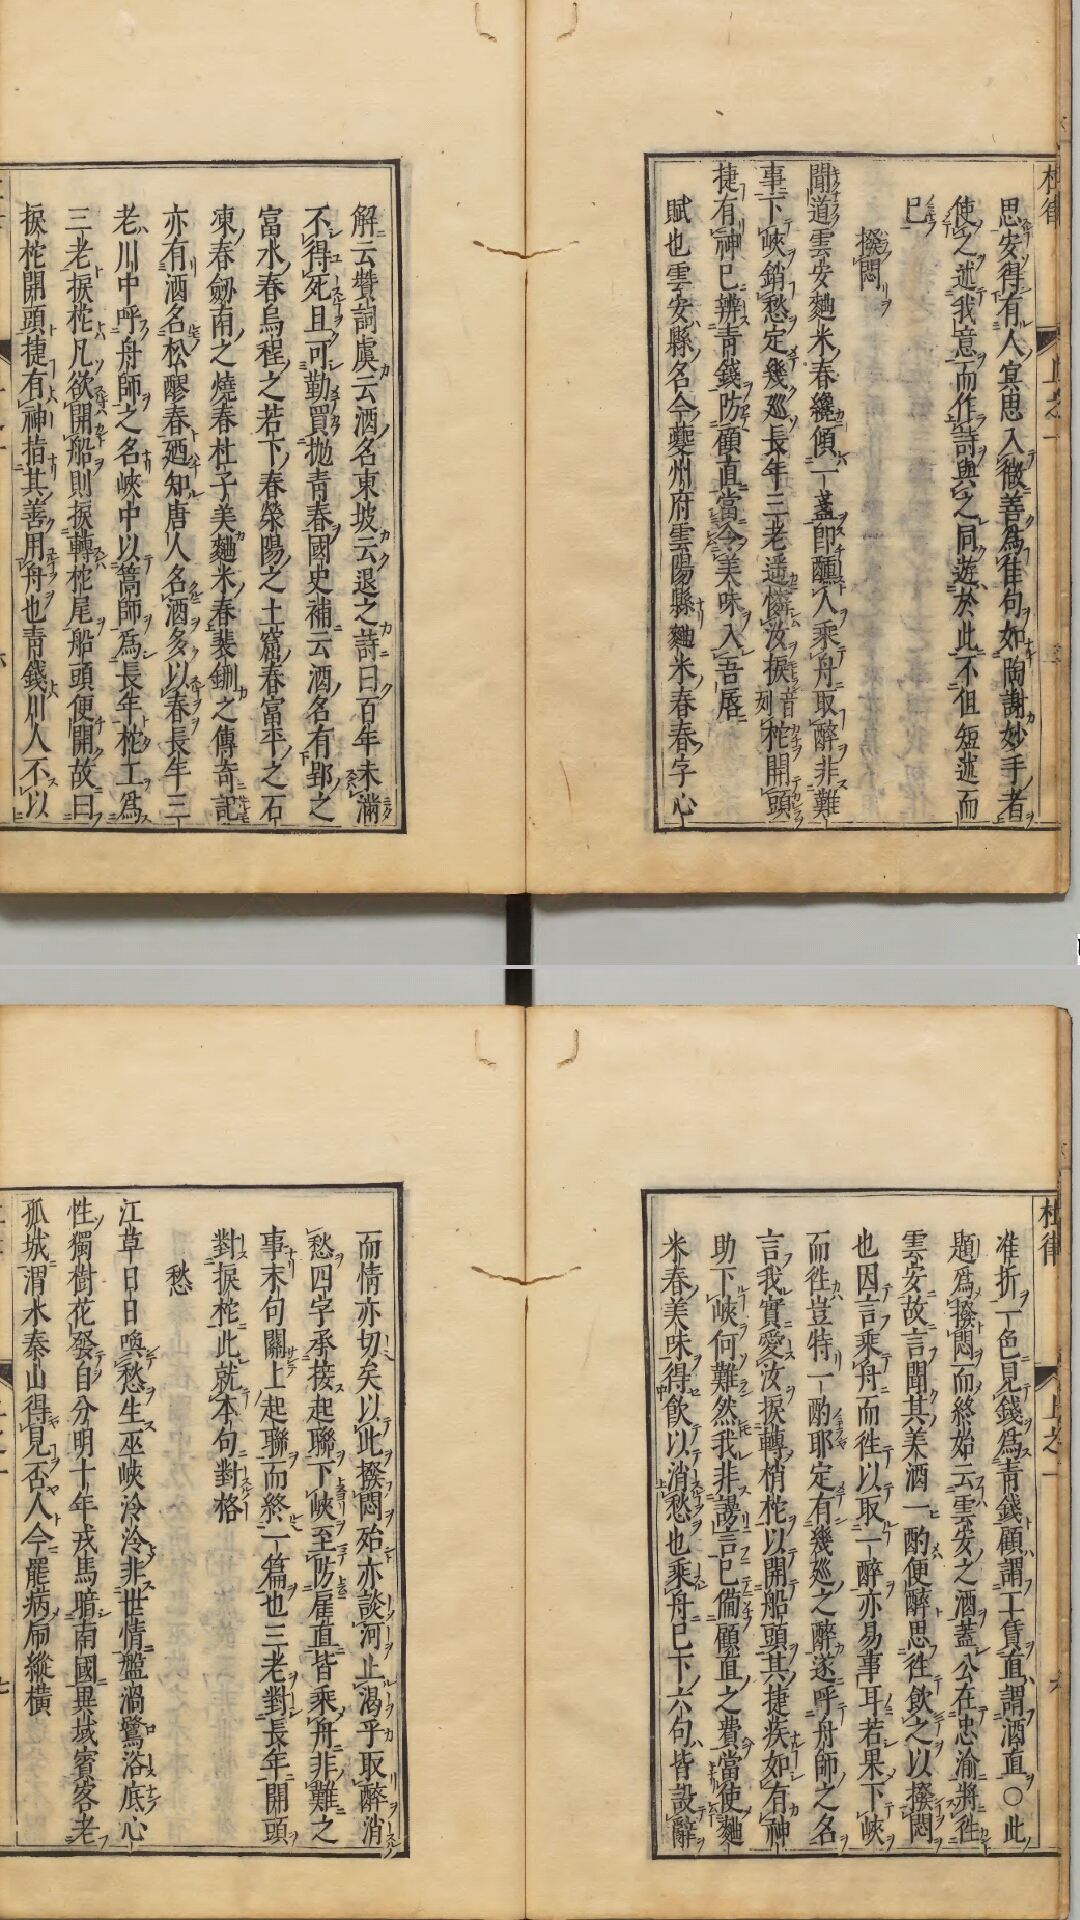 杜律
上之一
思安得有人寘思入微善為佳句如陶謝妙手者
使之述我意而作詩與之同遊於此不但短述而
已
撥悶
聞道雲安麯米春纔傾一盞即醺人乘舟取醉非難
事下峽銷愁定幾巡長年三老遥憐汝捩音列柁開頭
捷有神已辨青錢防顧直當令美味入吾唇
賦也雲安縣名今夔州府雲陽縣麯米春春字心
解云贊詞虞云酒名東坡云退之詩曰百年未滿
不得死且可勤買抛青春國史補云酒名有郢之
富水春烏程之若下春滎陽之土窟春富平之石
凍春劔南之燒春杜子美麯米春裴鉶之傳奇記
亦有酒名松醪春廼知唐人名酒多以春長年三
老川中呼舟師之名峽中以篙師為長年柁工為
三老捩柁凡欲開船則捩轉柁尾船頭便開故曰
捩柁開頭捷有神指其善用舟也青錢川人不以
杜律
上之一
准折一色見錢為青錢顧謂工賃直謂酒直○此
題為撥悶而終始云雲安之酒蓋公在忠渝將往
雲安故言聞其美酒一酌便醉思往飲之以撥悶
也因言乘舟而往以取一醉亦易事耳若果下峽
而徃豈特一酌耶定有幾廵之醉遂呼舟師之名
言我實愛汝捩轉梢柁以開船頭其捷疾如有神
助下峽何難然我非謾言已備顧直之費當使麯
米春美味得飲以消愁也乘舟已下六句皆設辭
而情亦切矣以此撥悶殆亦談河止渴乎取醉消
愁四字承接起聯下峽至防雇直皆乘舟非難之
事末句關上起聯而終一篇也三老對長年開頭
對捩柁此就本句對格
愁
江草日日喚愁生巫峽泠泠非世情盤渦鷺浴底心
性獨樹花發自分明十年戎馬暗南國異域賓客老
孤城渭水秦山得見否人今罷病虎縱橫